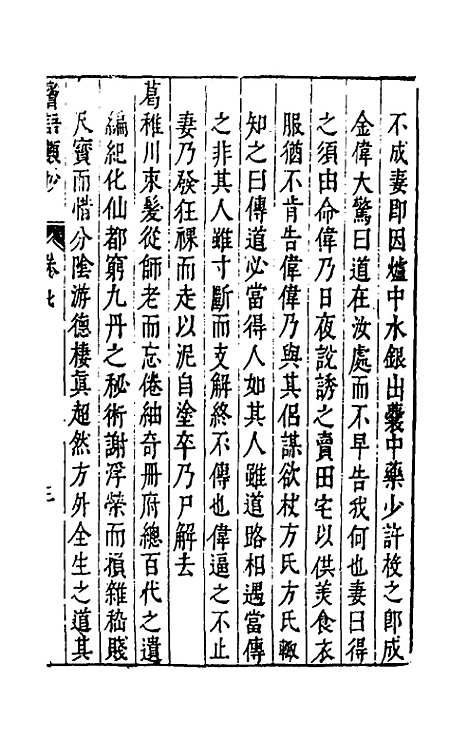 不成妻即因爐中水銀出囊中藥少許投之即成
金偉大驚曰道在汝處而不早告我何也妻曰得
之須由命偉乃日夜說誘之賣田宅以供美食衣
服猶不肯告偉偉乃與其侶謀欲杖方氏方氏輒
知之曰傳道必當得人如其人雖道路相遇當傳
之非其人雖寸斷而支解終不傳也偉逼之不止
妻乃發狂裸而走以泥自塗卒乃尸解去
葛稚川束髮從師老而忘倦紬奇冊府總百代之遺
編紀化仙都窮九丹之秘術謝浮榮而損雜嵇賤
尺寳而惜分陰游德棲真超然方外全生之道其
語類抄
卷七
三